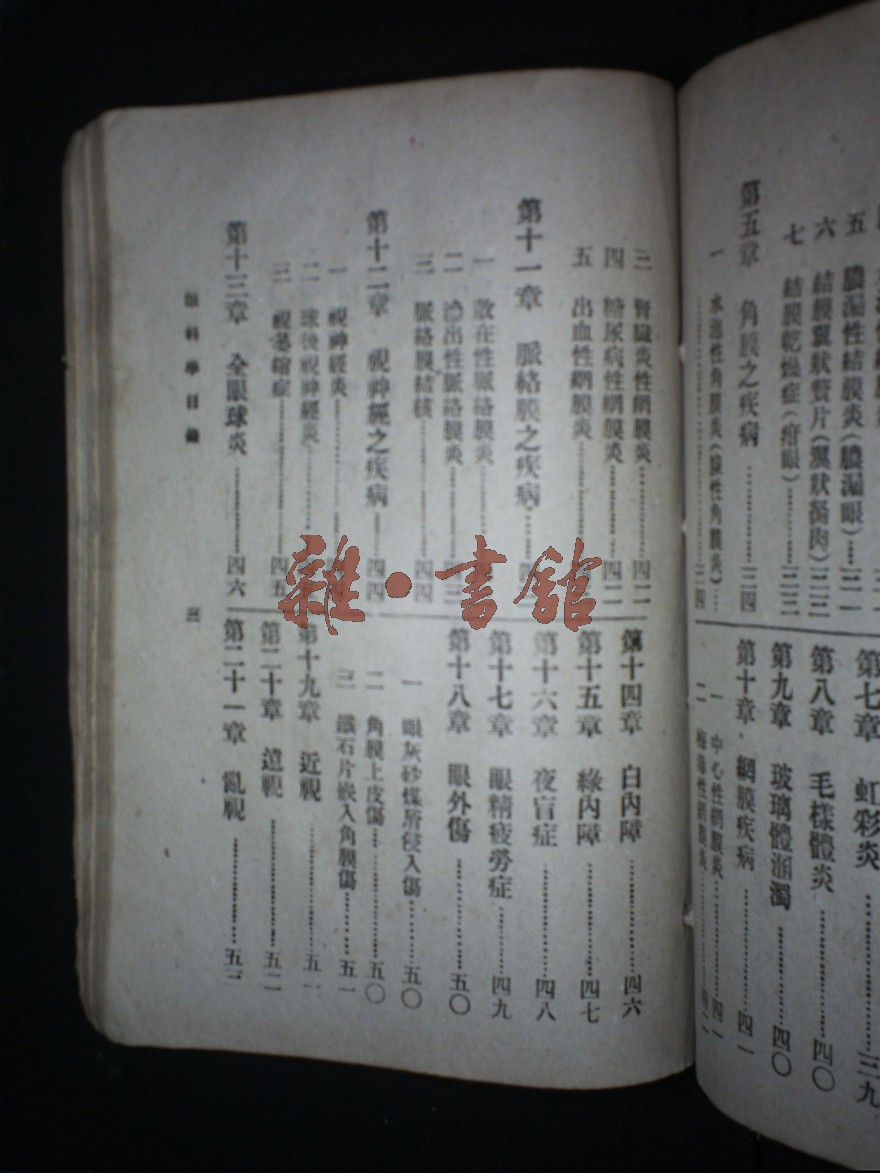 五 膿漏性結膜炎(膿漏眼)……三一
六 結膜翼狀贅片(翼狀胬肉)三三
七 結膜乾燥症(疳眼)…………三三
第五章 角膜之疾病……………三四
一 水泡性角膜炎(腺性角膜炎)…三四
第七章 虹彩炎……………三九
第八章 毛樣體炎……………四〇
第九章 玻璃體溷濁……………四〇
第十章 網膜疾病……………四一
一 中心性網膜炎……………四一
二 梅毒性網膜炎……………四二
三 腎臟炎性網膜炎……………四二
四 糖尿病性網膜炎……………四二
五 出血性網膜炎
第十一章 脈絡膜之疾病
一 散在性脈絡膜炎
二 滲出性脈絡膜炎
三 脈絡膜結核……………四四
第十二章 視神經之疾病……四四
一 視神經炎
二 球後視神經炎
三 視萎縮症……………四五
第十三章 全眼球炎……………四六
第十四章 白內障……………四六
第十五章 綠內障……………四七
第十六章 夜盲症……………四八
第十七章 眼精疲勞症…………四九
第十八章 眼外傷……………五〇
一 眼灰砂煤屑侵入傷…………五〇
二 角膜上皮傷……………五〇
三 鐵石片嵌入角膜傷…………五一
第十九章 近視……………五一
第二十章 遠視……………五二
第二十一章 亂視……………五三
眼科學目錄
三
雜·書館